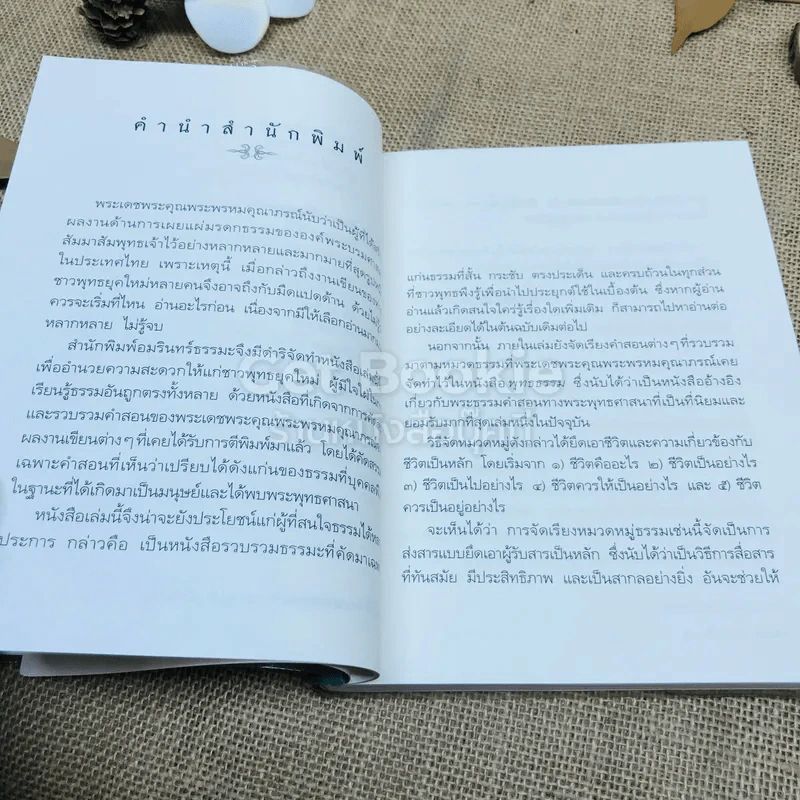 คำนำสำนักพิมพ์
พระเดชพระคุณพระพรหมคุณาภรณ์นับว่าเป็นผู้ที่ได้
ผลงานด้านการเผยแผ่มรดกธรรมขององค์พระบรม
สัมมาสัมพุทธเจ้าไว้อย่างหลากหลายและมากมายที่สุด
ในประเทศไทย เพราะเหตุนี้ เมื่อกล่าวถึงงานเขียนของ
ชาวพุทธยุคใหม่หลายคนจึงอาจถึงกับมืดแปดด้าน ด้วยไม่
ควรจะเริ่มที่ไหน อ่านอะไรก่อน เนื่องจากมีให้เลือกอ่าน
หลากหลาย ไม่รู้จบ
สำนักพิมพ์อมรินทร์ธรรมะจึงมีดำริจัดทำหนังสือ
เพื่ออำนวยความสะดวกให้แก่ชาวพุทธยุคใหม่ ผู้มีใจ
เรียนรู้ธรรมอันถูกตรงทั้งหลาย ด้วยหนังสือที่เกิดจากการ
และรวบรวมคำสอนของพระเดชพระคุณพระพรหมคุณาภรณ์
ผลงานเขียนต่างๆ ที่เคยได้รับการตีพิมพ์มาแล้ว โดยได้คัด
เฉพาะคำสอนที่เห็นว่าเปรียบได้ดังแก่นของธรรมที่บุคคล
ในฐานะที่ได้เกิดมาเป็นมนุษย์และได้พบพระพุทธศาสนา
หนังสือเล่มนี้จึงน่าจะยังประโยชน์แก่ผู้ที่สนใจธรรมได้
ประการ กล่าวคือ เป็นหนังสือรวบรวมธรรมะที่คัดมา
แก่นธรรมที่สั้น กระชับ ตรงประเด็น และครบถ้วนในทุกส่วน
ที่ชาวพุทธพึงรู้เพื่อนำไปประยุกต์ใช้ในเบื้องต้น ซึ่งหากผู้อ่าน
อ่านแล้วเกิดสนใจใคร่รู้เรื่องใดเพิ่มเติม ก็สามารถไปหาอ่านต่อ
อย่างละเอียดได้ในต้นฉบับเดิมต่อไป
นอกจากนั้น ภายในเล่มยังจัดเรียงคำสอนต่างๆ ที่รวบรวม
มาตามหมวดธรรมที่พระเดชพระคุณพระพรหมคุณาภรณ์เคย
จัดทำไว้ในหนังสือ พุทธธรรม ซึ่งนับได้ว่าเป็นหนังสืออ้างอิง
เกี่ยวกับพระธรรมคำสอนทางพระพุทธศาสนาที่เป็นที่นิยมและ
ยอมรับมากที่สุดเล่มหนึ่งในปัจจุบัน
วิธีจัดหมวดหมู่ดังกล่าวได้ยึดเอาชีวิตและความเกี่ยวข้องกับ
ชีวิตเป็นหลัก โดยเริ่มจาก ๑) ชีวิตคืออะไร ๒) ชีวิตเป็นอย่างไร
๓) ชีวิตเป็นไปอย่างไร ๔) ชีวิตควรให้เป็นอย่างไร และ ๕) ชีวิต
ควรเป็นอยู่อย่างไร
จะเห็นได้ว่า การจัดเรียงหมวดหมู่ธรรมเช่นนี้จัดเป็นการ
ส่งสารแบบยึดเอาผู้รับสารเป็นหลัก ซึ่งนับได้ว่าเป็นวิธีการสื่อสาร
ที่ทันสมัย มีประสิทธิภาพ และเป็นสากลอย่างยิ่ง อันจะช่วยให้